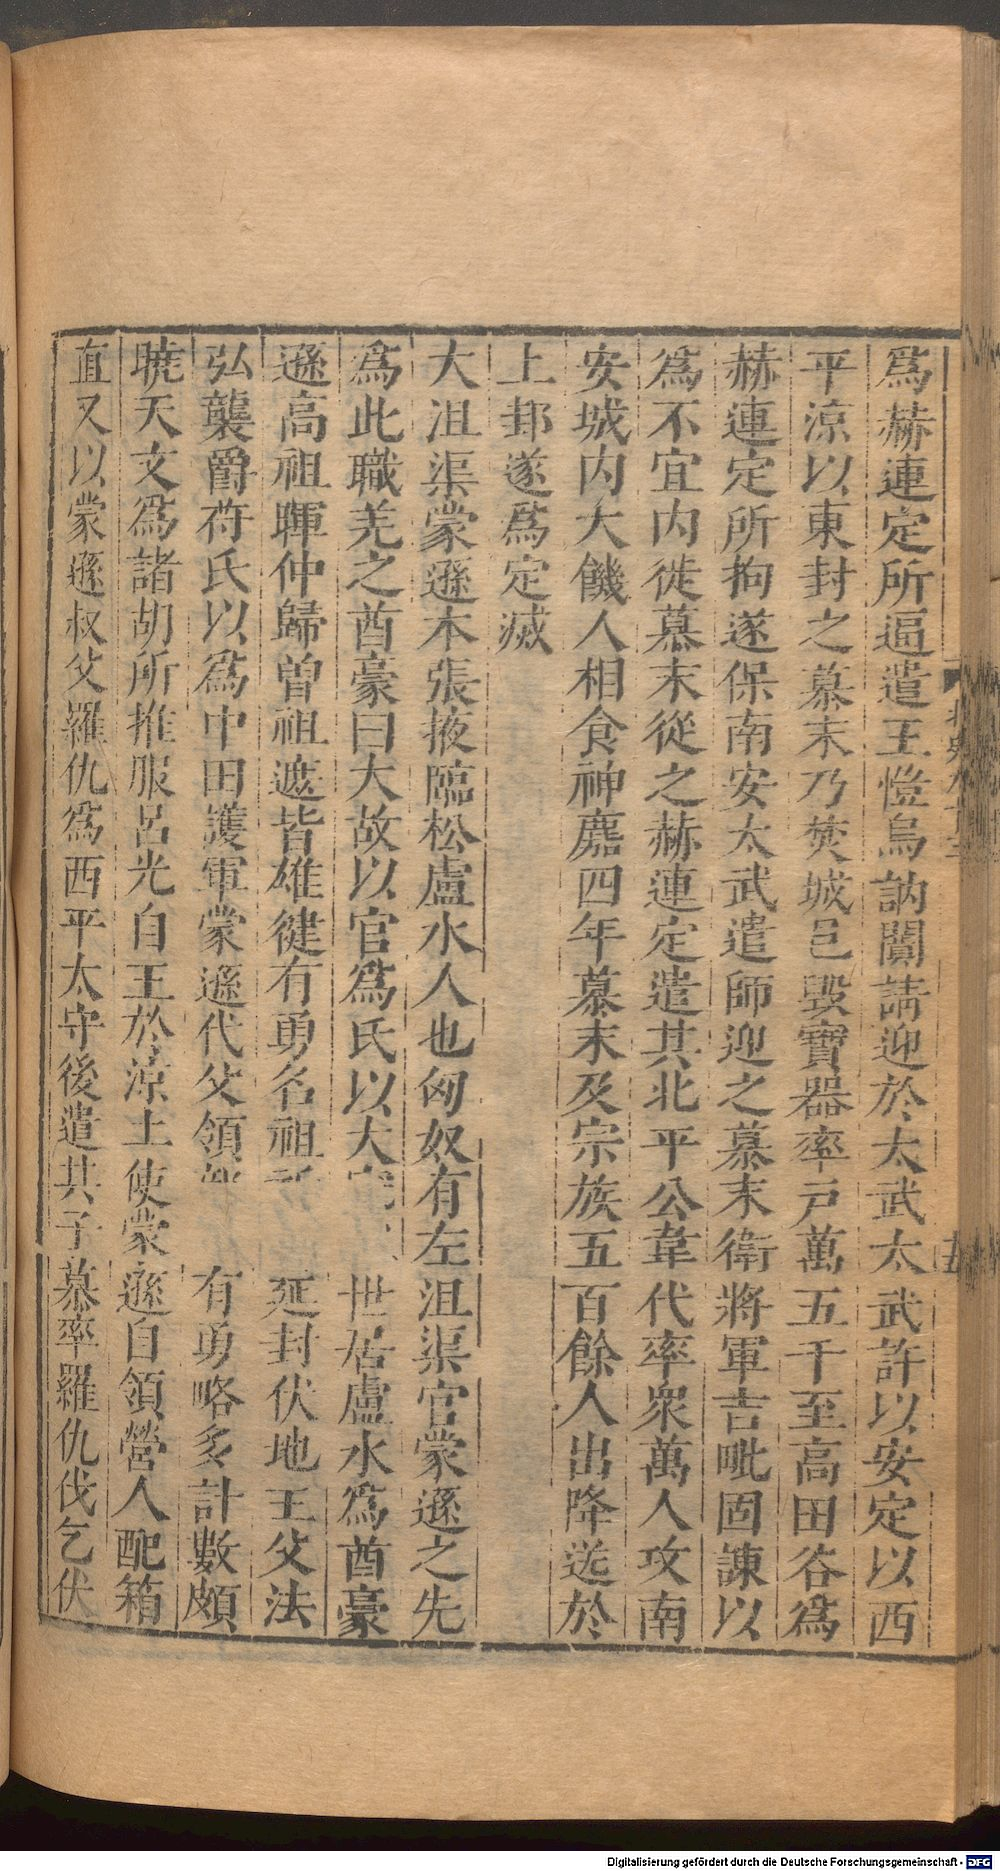 爲赫連定所逼遣王愷烏訥闐請迎於太武太武許以安定以西
平涼以東封之慕末乃焚城邑毀寶器率戸萬五千至高田谷爲
赫連定所拘遂保南安太武遣師迎之慕末衛將軍吉毗固諫以
爲不宜内徙慕末從之赫連定遣其北平公韋代率衆萬人攻南
安城内大饑人相食神䴥四年慕末及宗族五百餘人出降送於
上邽遂爲定滅
大沮渠蒙遜本張掖臨松盧水人也匈奴有左沮渠官蒙遜之先
爲此職羌之酋豪曰大故以官爲氏以大世居盧水爲酋豪
遜高祖暉仲歸曾祖遮皆雄健有勇名祖延封伏地王父法
弘襲爵苻氏以爲中田護軍蒙遜代父領有勇略多計數頗
曉天文爲諸胡所推服呂光自王於涼土使蒙遜自領營人配箱
直又以蒙遜叔父羅仇爲西平太守後遣其子慕率羅仇伐乞伏
Digitalisierung gefördert durch die Deutsche Forschungsgemeinschaft - DFG